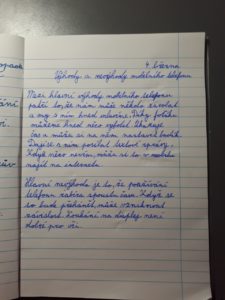 4. března
Výhody a nevýhody mobilního telefonu
Mezi hlavní výhody mobilního telefonu
patří to, že nám může někdo zavolat
a my s ním hned mluvíme. Díky fotíku
můžeme hned něco vyfotit. Ukazuje
čas a může si na něm nastavit budík.
Dají se s ním posílat textové zprávy.
Když něco nevím, může si to v mobilu
najít na internetu.
Hlavní nevýhoda je to, že používání
telefonu zabírá spoustu času. Když se
to bude přehánět, může vzniknout
závislost. Koukání na displej není
dobré pro oči.